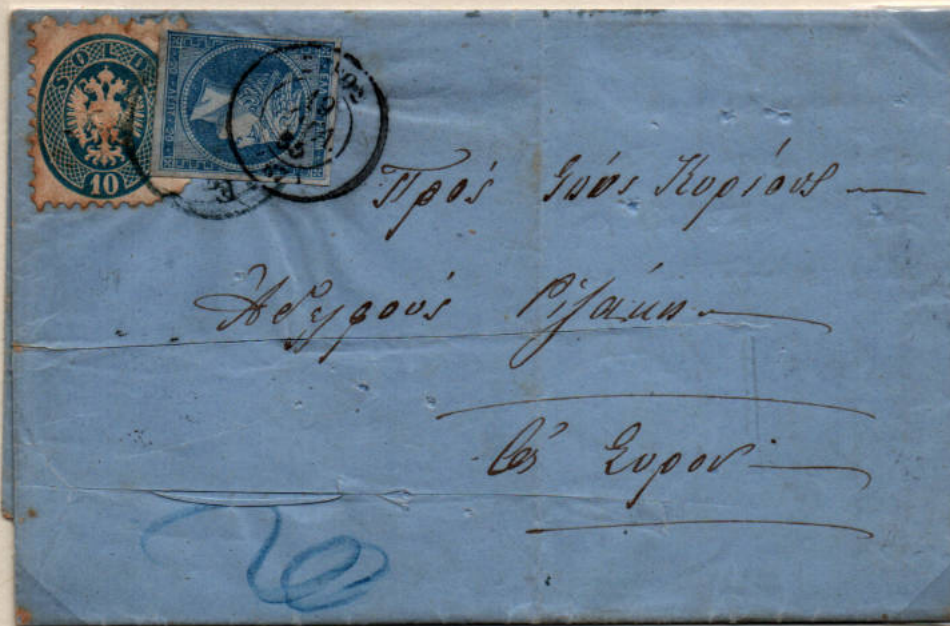 SOLDI
10
Πρός τούς Κυρίους
Ἀδελφούς Ριζάκη
Εἰς Σύρον
20